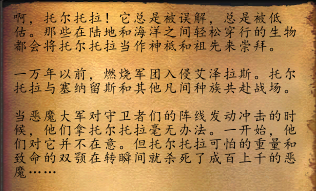 啊，托尔托拉！它总是被误解，总是被低
估。那些在陆地和海洋之间轻松穿行的生物
都会将托尔托拉当作神祗和祖先来崇拜。
一万年以前，燃烧军团入侵艾泽拉斯。托尔
托拉与塞纳留斯和其他凡间种族共赴战场。
当恶魔大军对守卫者们的阵线发动冲击的时
候，他们拿托尔托拉毫无办法。一开始，他
们对它并不在意。但托尔托拉可怕的重量和
致命的双颚在转瞬间就杀死了成百上千的恶
魔……